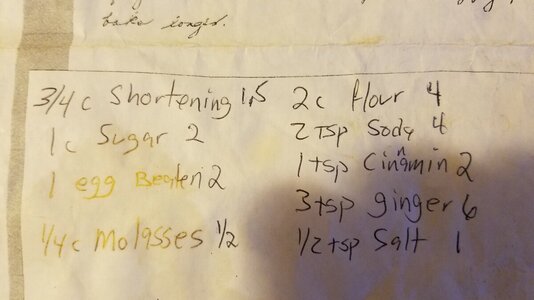 bake longer.
3/4 c Shortening 1.5
1 c Sugar 2
1 egg Beaten 2
1/4 c Molasses 1/2
2 c flour 4
2 Tsp Soda 4
1 tsp Cinnmin 2
3 tsp ginger 6
1/2 tsp Salt 1